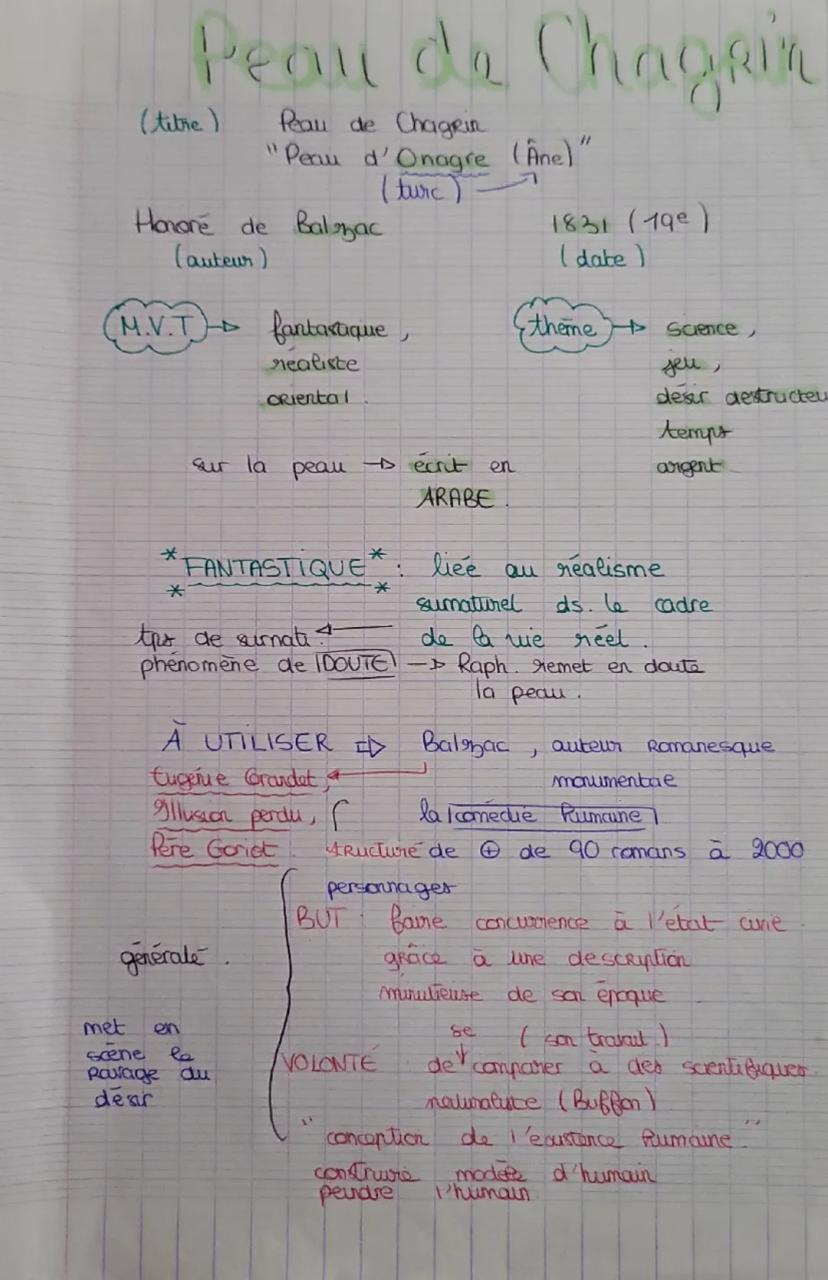 Peau de Chagrin
(titre) Peau de Chagrin
"Peau d'Onagre (Âne)"
(turc)
Honoré de Balzac 1831 (19e)
(auteur) (date)
M.V.T fantastique, thème science,
réaliste jeu,
oriental. désir destructeu
temps
sur la peau écrit en argent
ARABE.
*FANTASTIQUE* : liée au réalisme
* * surnaturel ds. le cadre
tps de surnati. de la vie réel.
phénomène de DOUTE Raph. remet en doute
la peau.
À UTILISER Balzac, auteur Romanesque
Eugénie Grandet, monumentae
Illusion perdu, la comédie humaine
Père Goriot. structuré de + de 90 romans à 2000
personnages
BUT : faire concurrence à l'état civie.
généralé. grâce à une description
minutieuse de son époque
met en se (son travail)
scène le VOLONTÉ de comparer à des scientifiques
ravage du naturaliste (Buffon)
désir
"conception de l'existence humaine"
construire modèle d'humain
peindre l'humain